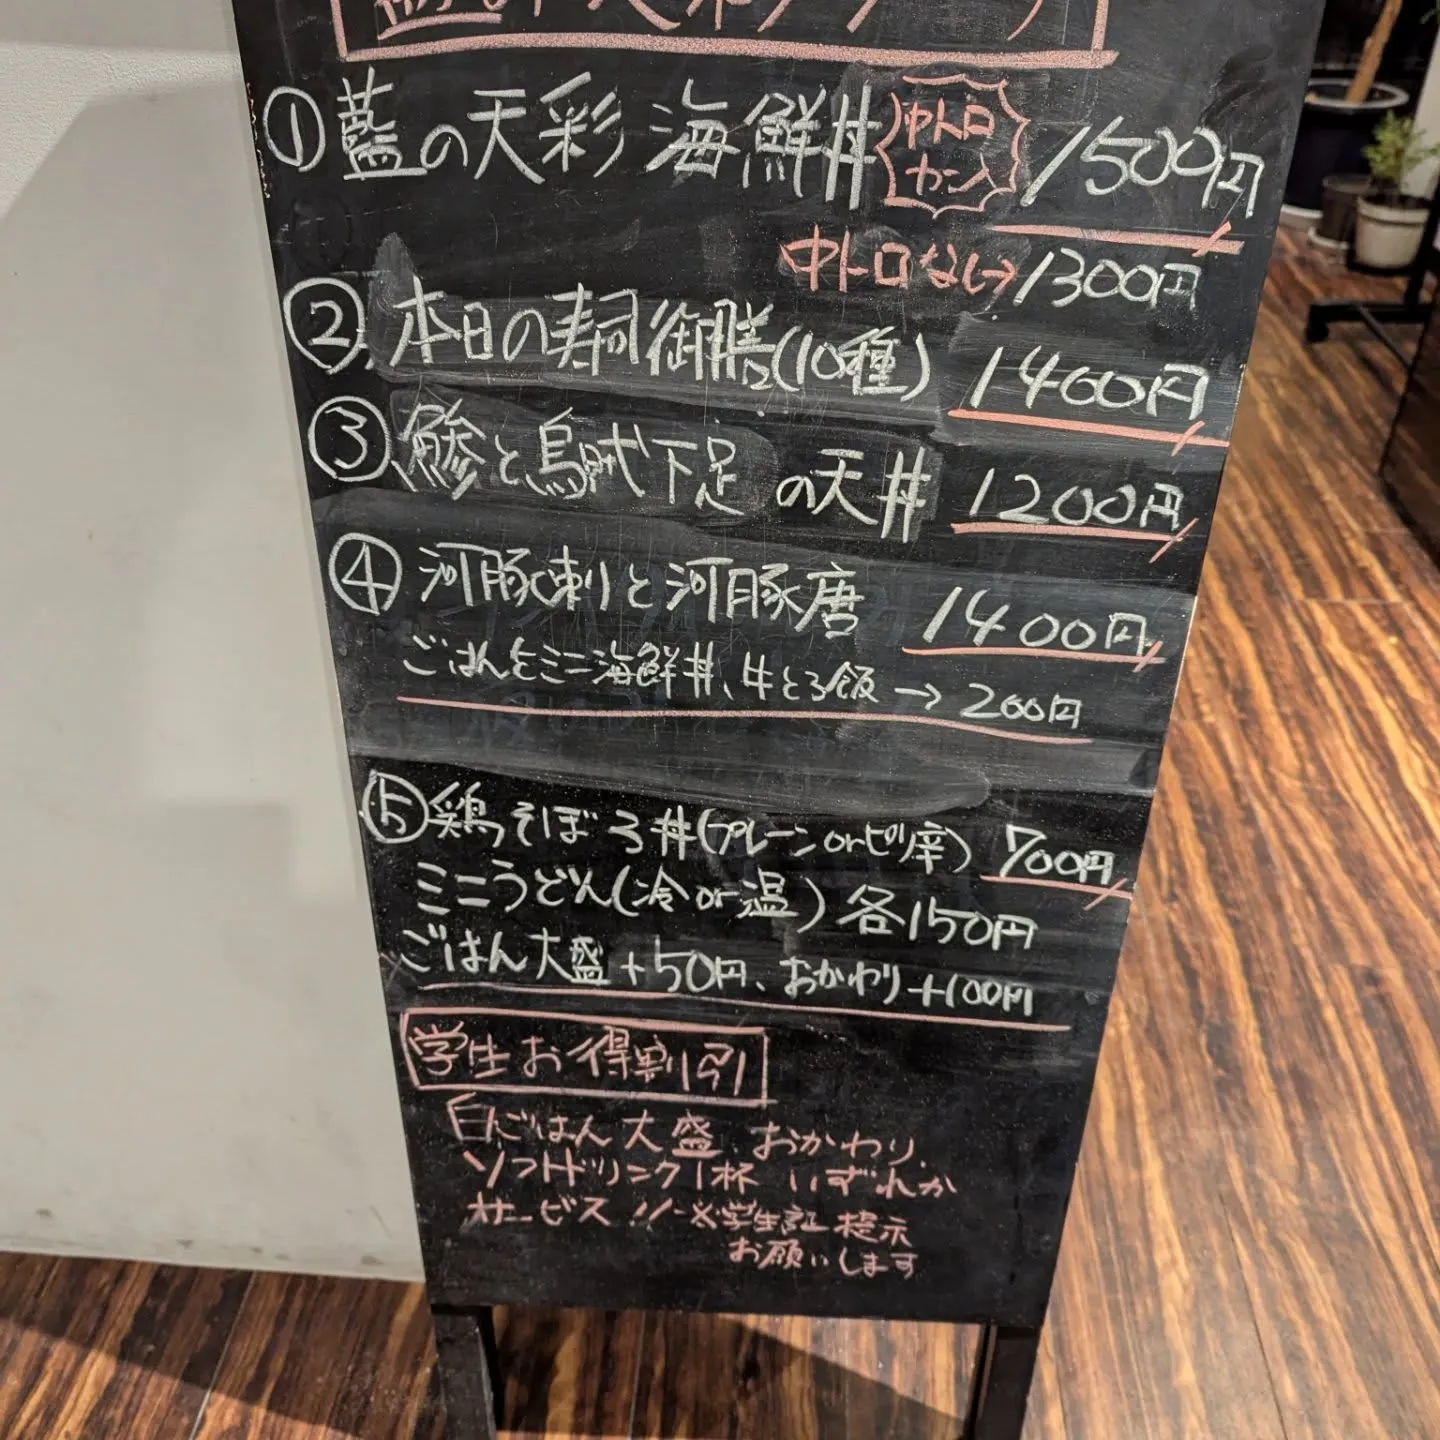 ①藍の天彩 海鮮丼 中トロ カン 1500円
中トロなし→1300円
②本日の寿司御膳(10種) 1400円
③鯵と烏賊下足の天丼 1200円
④河豚刺しと河豚唐 1400円
ごはんをミニ海鮮丼、牛とろ飯→200円
⑤鶏そぼろ丼(プレーンorピリ辛) 700円
ミニうどん(冷or温) 各150円
ごはん大盛+50円、おかわり+100円
学生お得割引
白ごはん大盛、おかわり、
ソフトドリンク1杯 いずれか
サービス!! ※学生証提示
お願いします